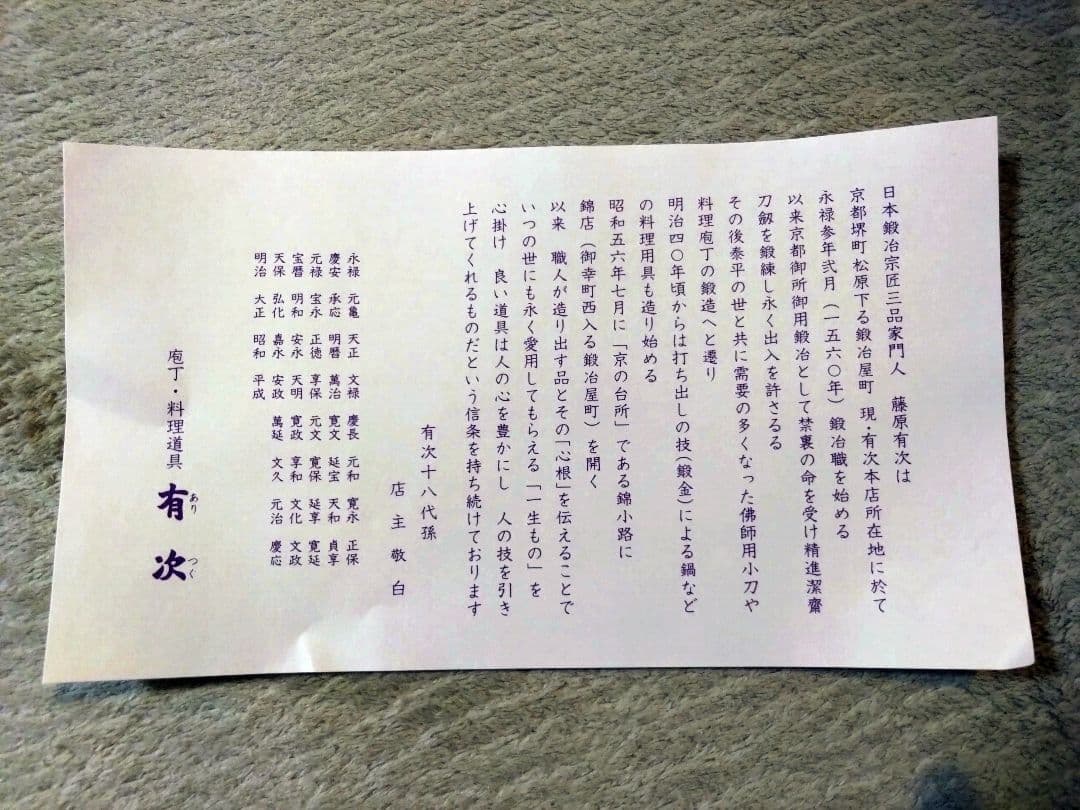 日本鍛冶宗匠三品家門人　藤原有次は
京都堺町松原下る鍛冶屋町　現・有次本店所在地に於て
永禄参年弐月（一五六〇年）鍛冶職を始める
以来京都御所御用鍛冶として禁裏の命を受け精進潔齋
刀剱を鍛練し永く出入を許さるる
その後泰平の世と共に需要の多くなった佛師用小刀や
料理庖丁の鍛造へと遷り
明治四〇年頃からは打ち出しの技（鍛金）による鍋など
の料理用具も造り始める
昭和五六年七月に「京の台所」である錦小路に
錦店（御幸町西入る鍛冶屋町）を開く
以来　職人が造り出す品とその「心根」を伝えることで
いつの世にも永く愛用してもらえる「一生もの」を
心掛け　良い道具は人の心を豊かにし　人の技を引き
上げてくれるものだという信条を持ち続けております
有次十八代孫
店主敬白
永禄　元亀　天正　文禄　慶長　元和　寛永　正保
慶安　承応　明暦　萬治　寛文　延宝　天和　貞享
元禄　宝永　正徳　享保　元文　寛保　延享　寛延
宝暦　明和　安永　天明　寛政　享和　文化　文政
天保　弘化　嘉永　安政　萬延　文久　元治　慶応
明治　大正　昭和　平成
庖丁・料理道具　有次
あり　つぐ